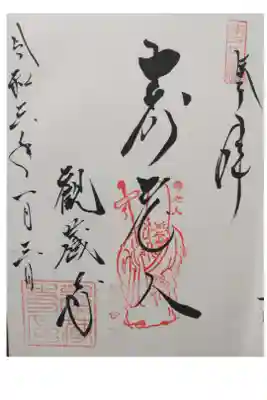 奉拝
寿老人
観蔵院
令和六年一月三日